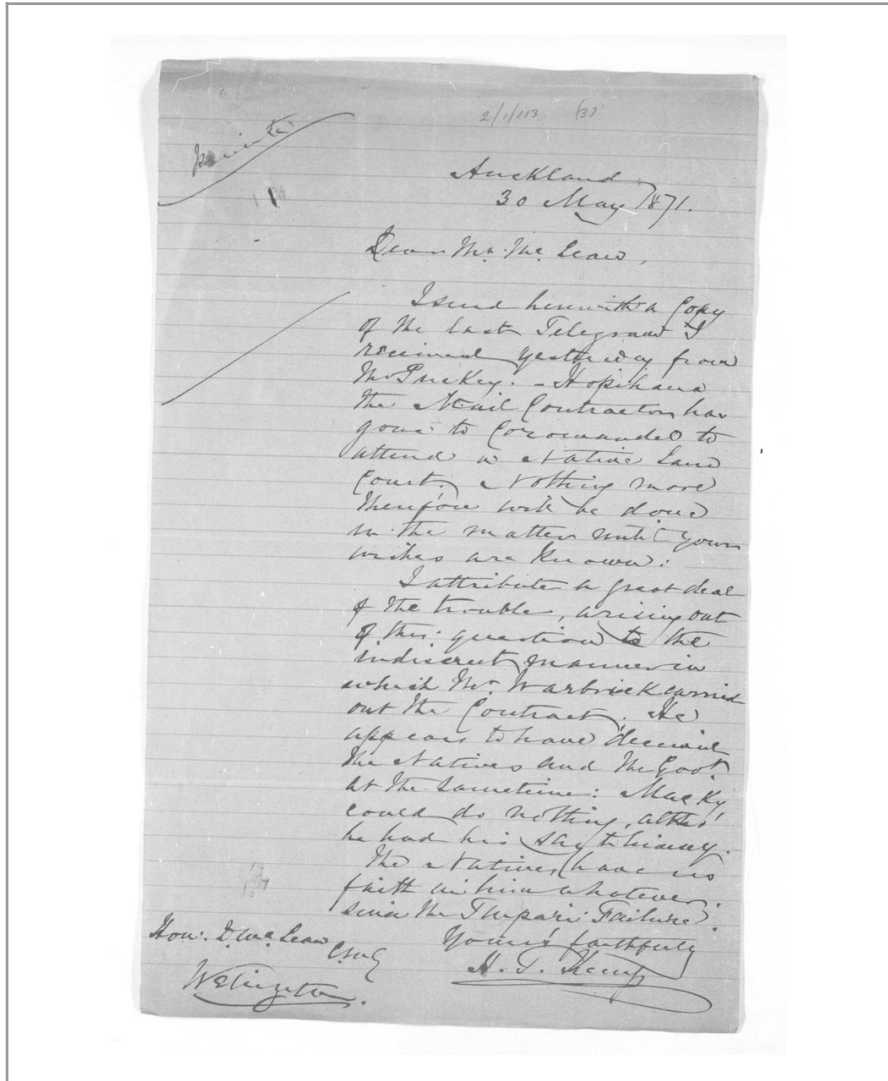 2/1/113 (3)
Private
Auckland
30 May 1871.
Dear Mr. McLean,
I send herewith a Copy
of the last Telegram I
received yesterday from
Mr Puckey. - Hopihana
the Mail Contractor, has
gone to Coromandel to
attend a Native Land
Court. Nothing more
therefore will be done
in the matter until your
wishes are known:
I attribute a great deal
of the trouble, arising out
of this question to the
indiscreet manner in
which Mr. Warbrick carried
out the Contract. He
appears to have deceived
the Natives and the Govt.
at the sametime: Mackay
could do nothing, altho'
he had his say to
The Natives have no
faith in him whatever,
since the Failure.
Yours faithfully
H. T. Kemp
Honr. D. McLean
CMG
Wellington.